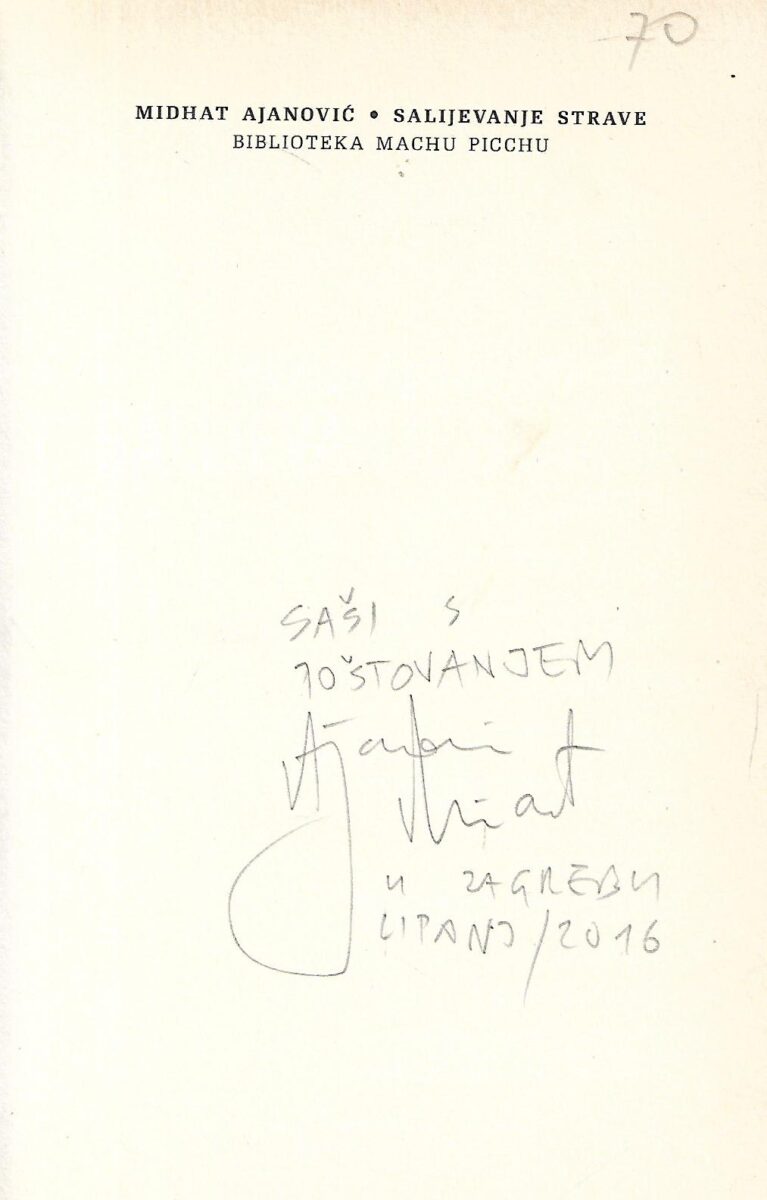 70
MIDHAT AJANOVIĆ • SALIJEVANJE STRAVE
BIBLIOTEKA MACHU PICCHU
SAŠI S
POŠTOVANJEM
Ajanović
Midhat
U ZAGREBU
LIPANJ/2016